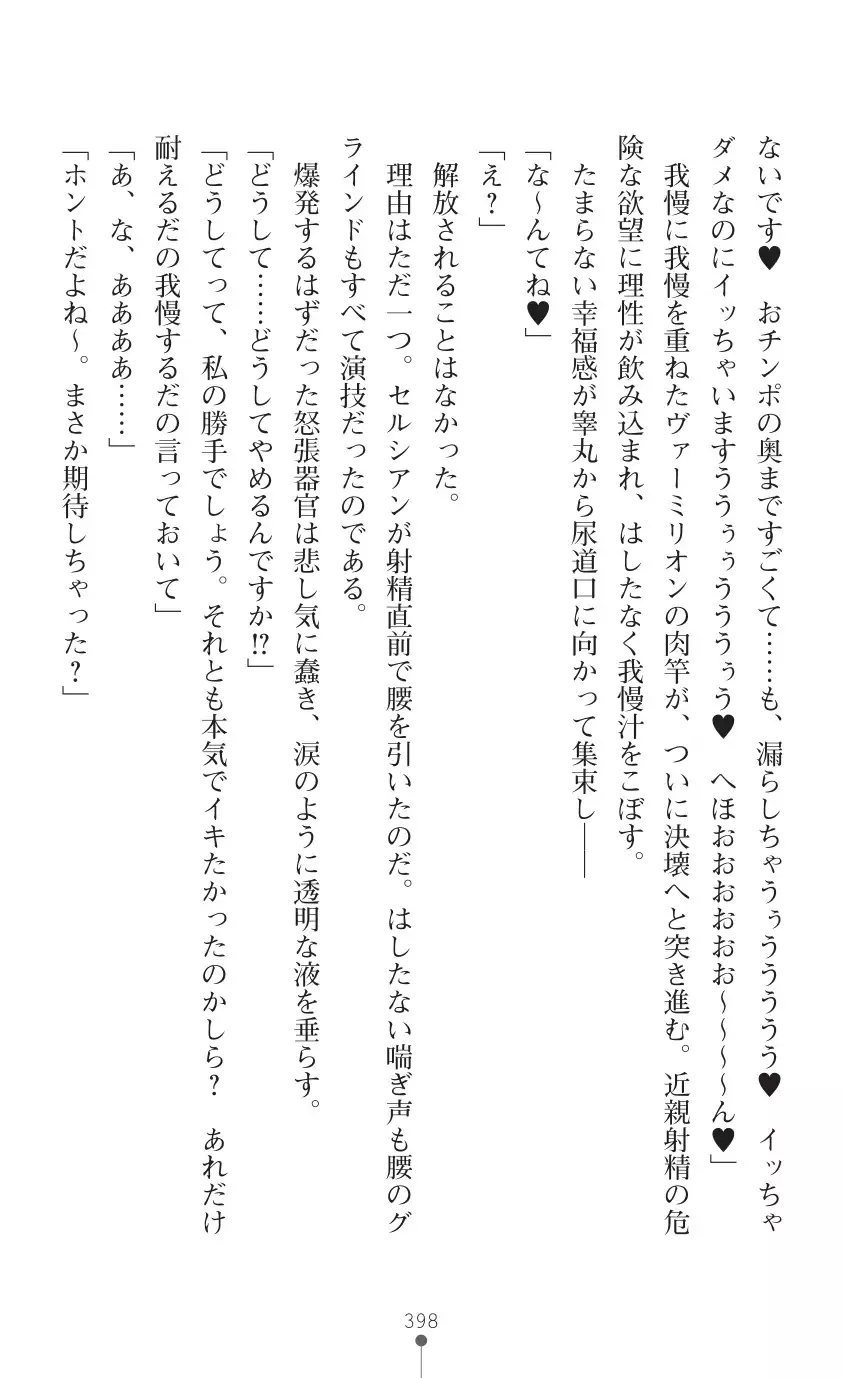 ないです♥　おチンポの奥まですごくて……も、漏らしちゃうぅうううう♥　イッちゃ
ダメなのにイッちゃいますううぅぅうううぅう♥　へほぉおおおおお～～～～ん♥」
　我慢に我慢を重ねたヴァーミリオンの肉竿が、ついに決壊へと突き進む。近親射精の危
険な欲望に理性が飲み込まれ、はしたなく我慢汁をこぼす。
　たまらない幸福感が睾丸から尿道口に向かって集束し――
「な～んてね♥」
「え？」
　解放されることはなかった。
　理由はただ一つ。セルシアンが射精直前で腰を引いたのだ。はしたない喘ぎ声も腰のグ
ラインドもすべて演技だったのである。
　爆発するはずだった怒張器官は悲し気に蠢き、涙のように透明な液を垂らす。
「どうして……どうしてやめるんですか!?」
「どうしてって、私の勝手でしょう。それとも本気でイキたかったのかしら？　あれだけ
耐えるだの我慢するだの言っておいて」
「あ、な、ああああ……」
「ホントだよね～。まさか期待しちゃった？」
398